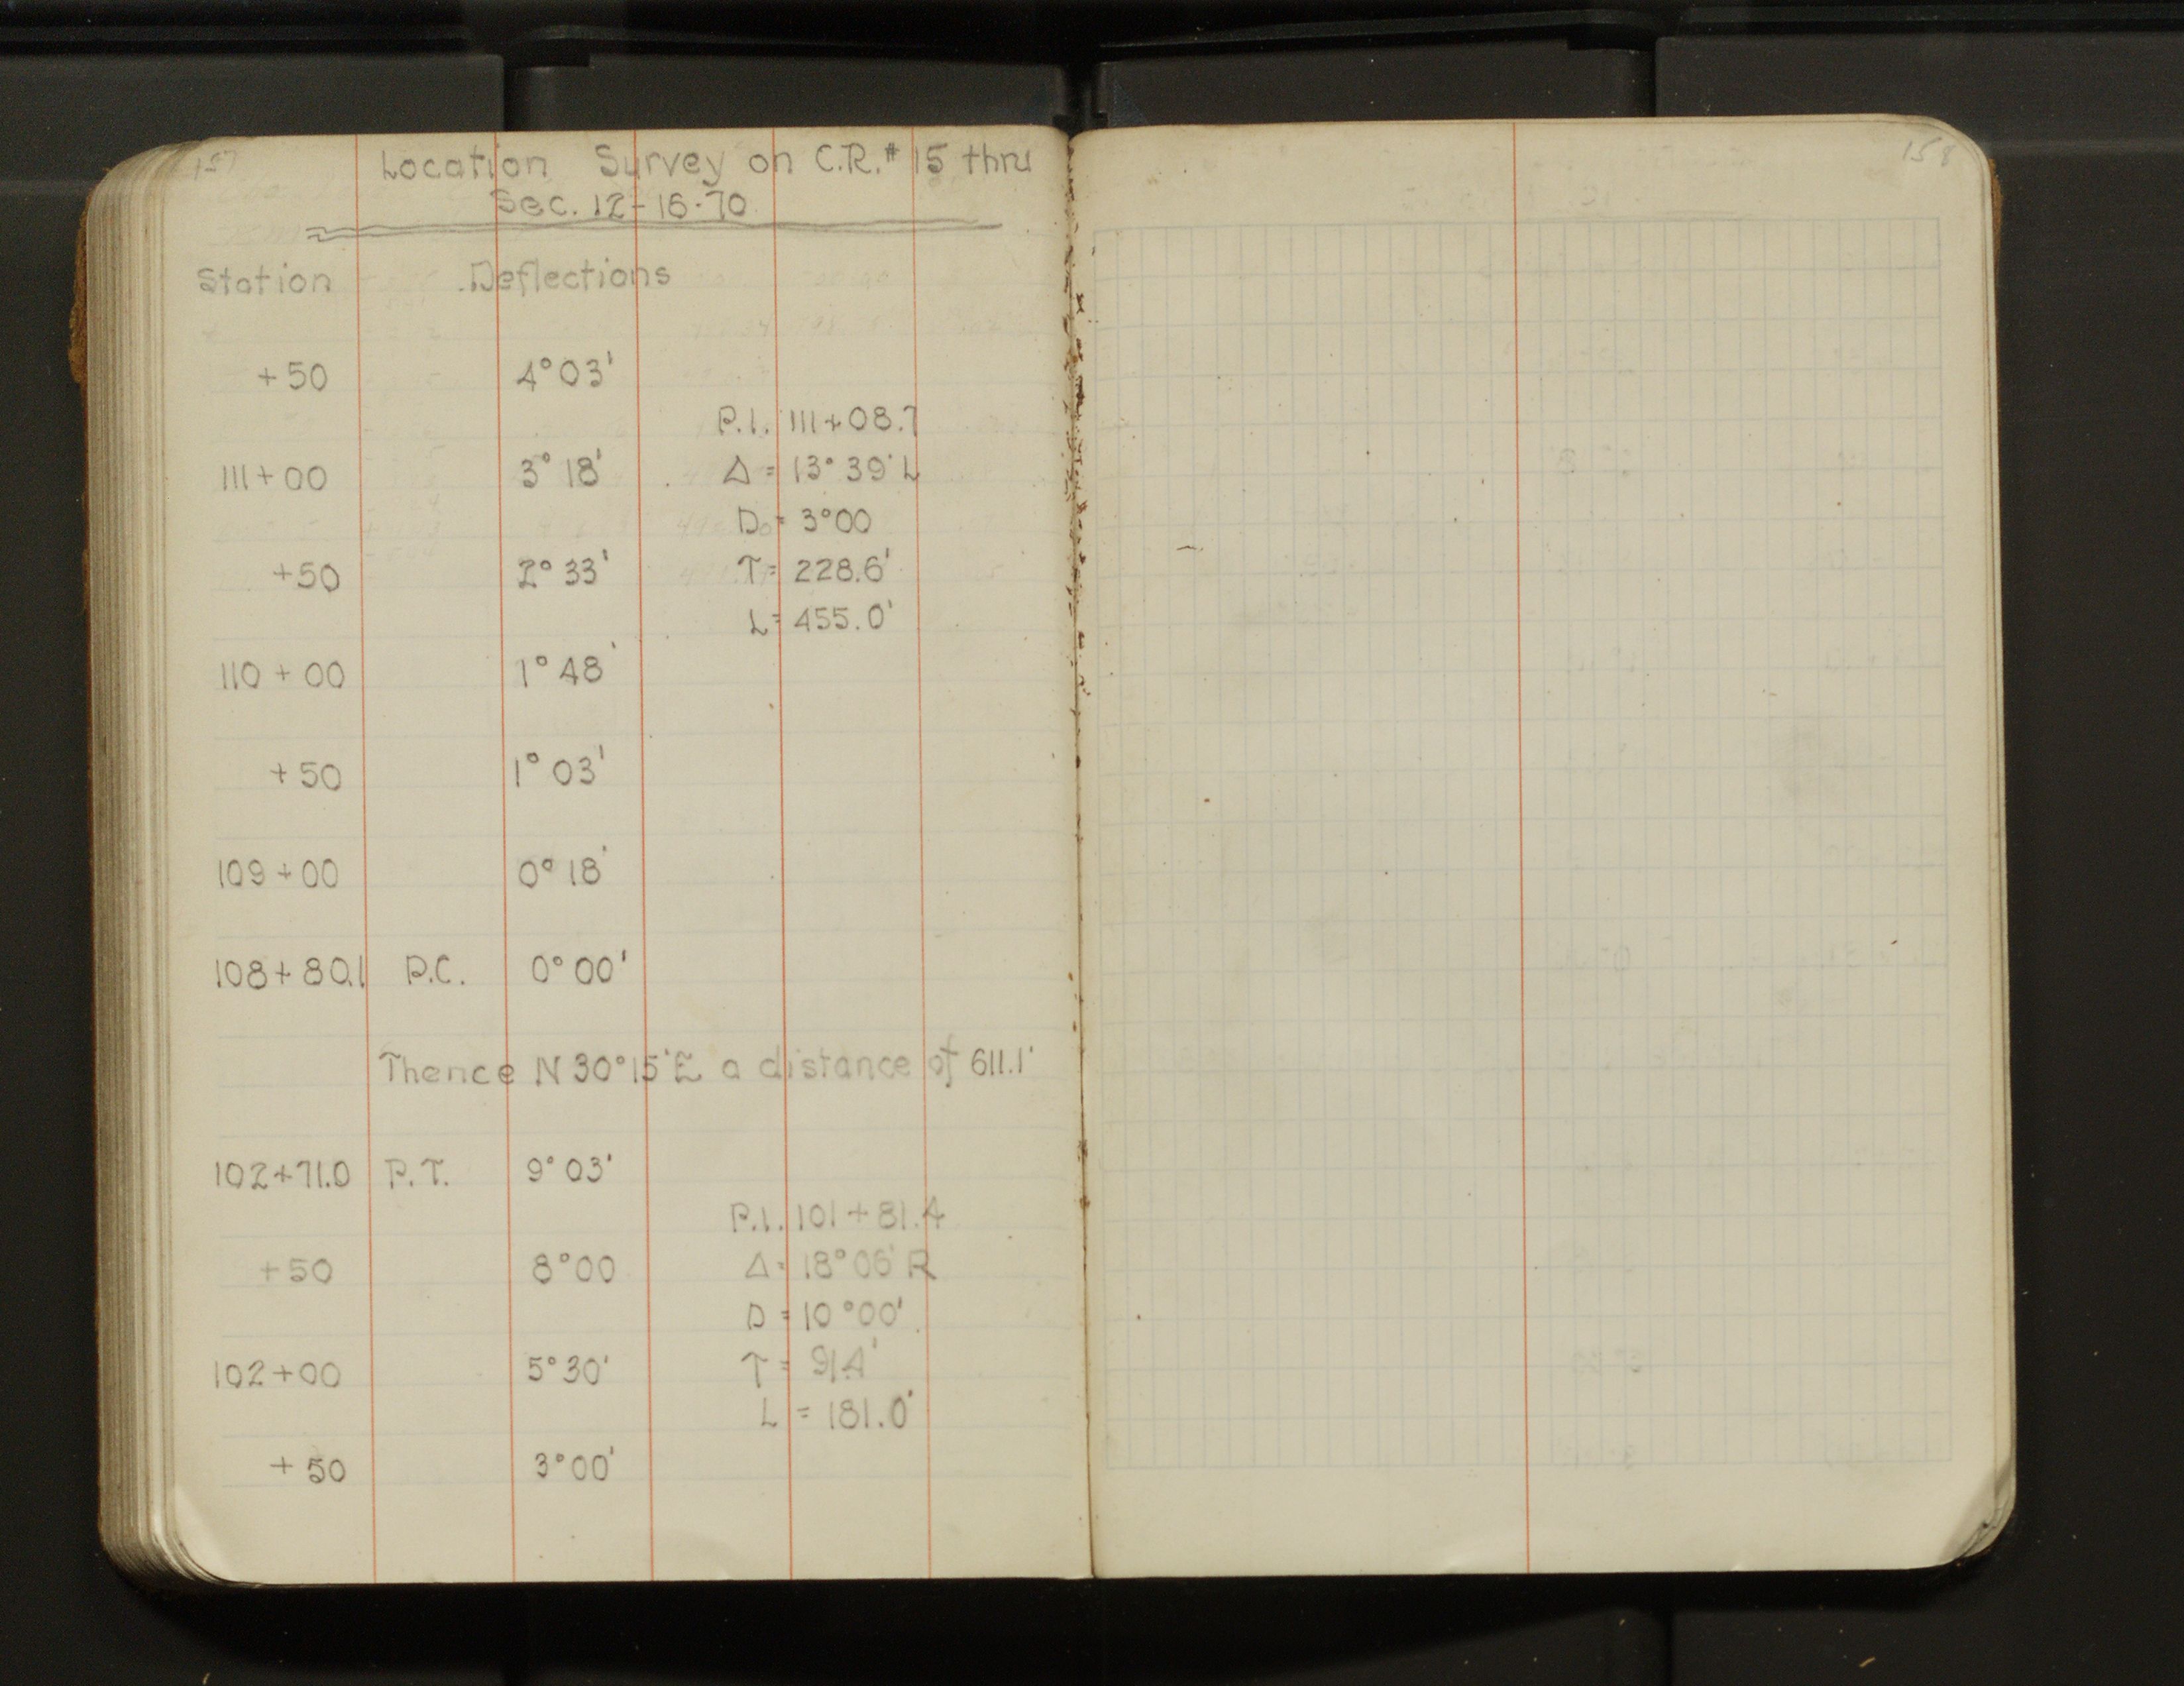 157
Location Survey on C.R.# 15 thru
Sec. 12-16-70
Station Deflections
+50 4°03'
P.I. 111+08.7
111+00 3°18' Δ = 13°39' L
D = 3°00
+50 2°33' T = 228.6'
L = 455.0'
110+00 1°48'
+50 1°03'
109+00 0°18'
108+80.1 P.C. 0°00'
Thence N 30°15'E a distance of 611.1'
102+71.0 P.T. 9°03'
P.I. 101+81.4
+50 8°00 Δ = 18°06' R
D = 10°00'
102+00 5°30' T = 91.4'
L = 181.0'
+50 3°00'
158